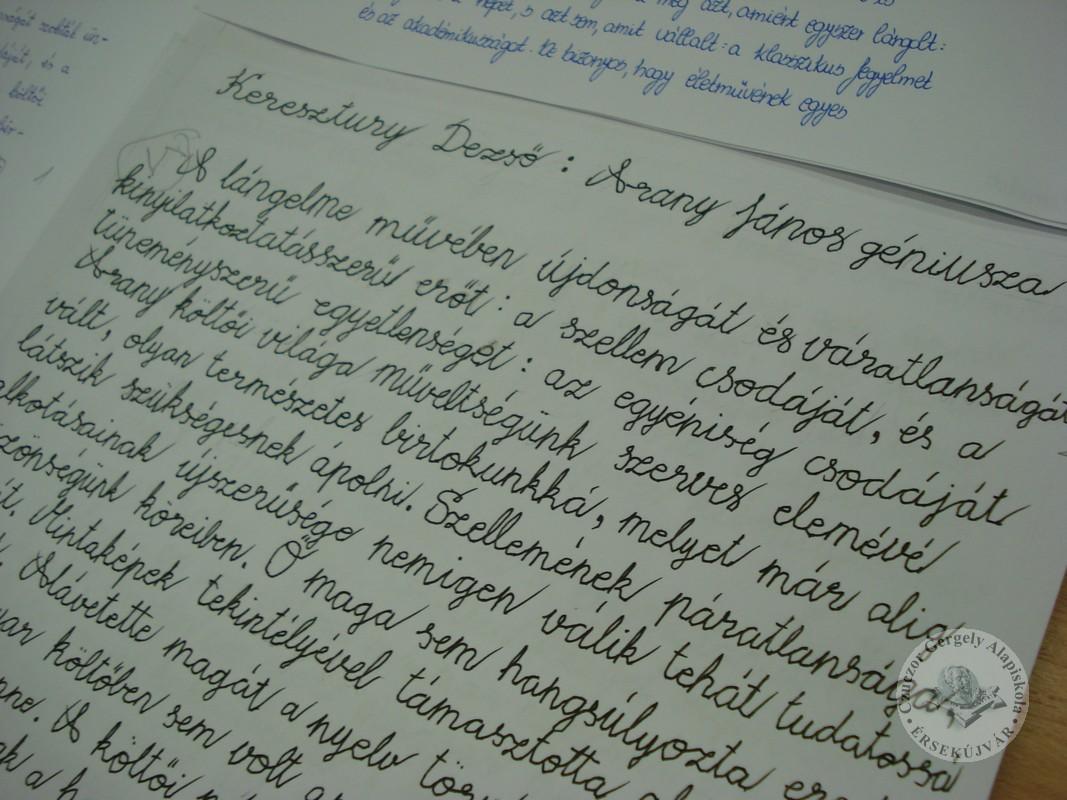 ságát szokták ün-
déját, és a
költői
meg azt, amiért egyszer lángolt:
népet, s azt sem, amit vállalt: a klasszikus fegyelmet
és az akadémikusságot. De bizonyos, hogy életművének egyes
Keresztury Dezső: Arany János géniusza
A lángelme művében újdonságát és váratlanságát
kinyilatkoztatásszerű erőt: a szellem csodáját, és a
tüneményszerű egyetlenségét: az egyéniség csodáját
Arany költői világa műveltségünk szerves elemévé
vált, olyan természetes birtokunkká, melyet már alig
látszik szükségesnek ápolni. Szellemének páratlansága,
alkotásainak újszerűsége nemigen válik tehát tudatossá
közönségünk köreiben. Ő maga sem hangsúlyozta
Mintaképek tekintélyével támasztotta
Alávetette magát a nyelv
költőben sem volt
A költői
a
Czuczor Gergely Alapiskola
• ÉRSEKÚJVÁR •